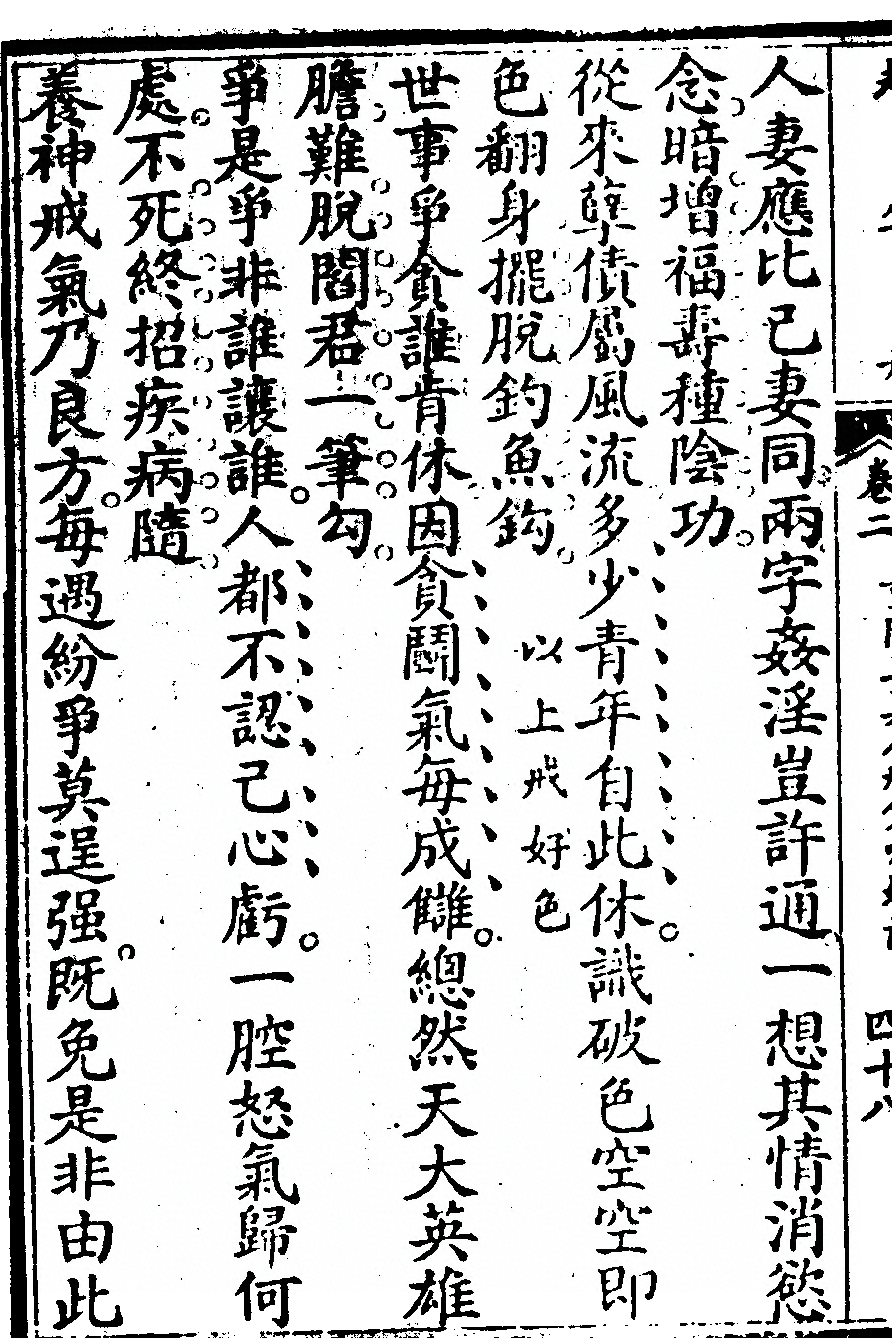 卷二
四十八
人妻應比己妻同兩字姦淫豈許通一想其情消慾
念暗增福壽種陰功
從來孽債屬風流多少青年自此休識破色空空即
色翻身擺脫釣魚鈎
以上戒好色
世事爭貪誰肯休因貪鬭氣每成讎總然天大英雄
膽難脫閻君一筆勾
爭是爭非誰讓誰人都不認己心虧一腔怒氣歸何
處不死終招疾病隨
養神戒氣乃良方每遇紛爭莫逞强既免是非由此